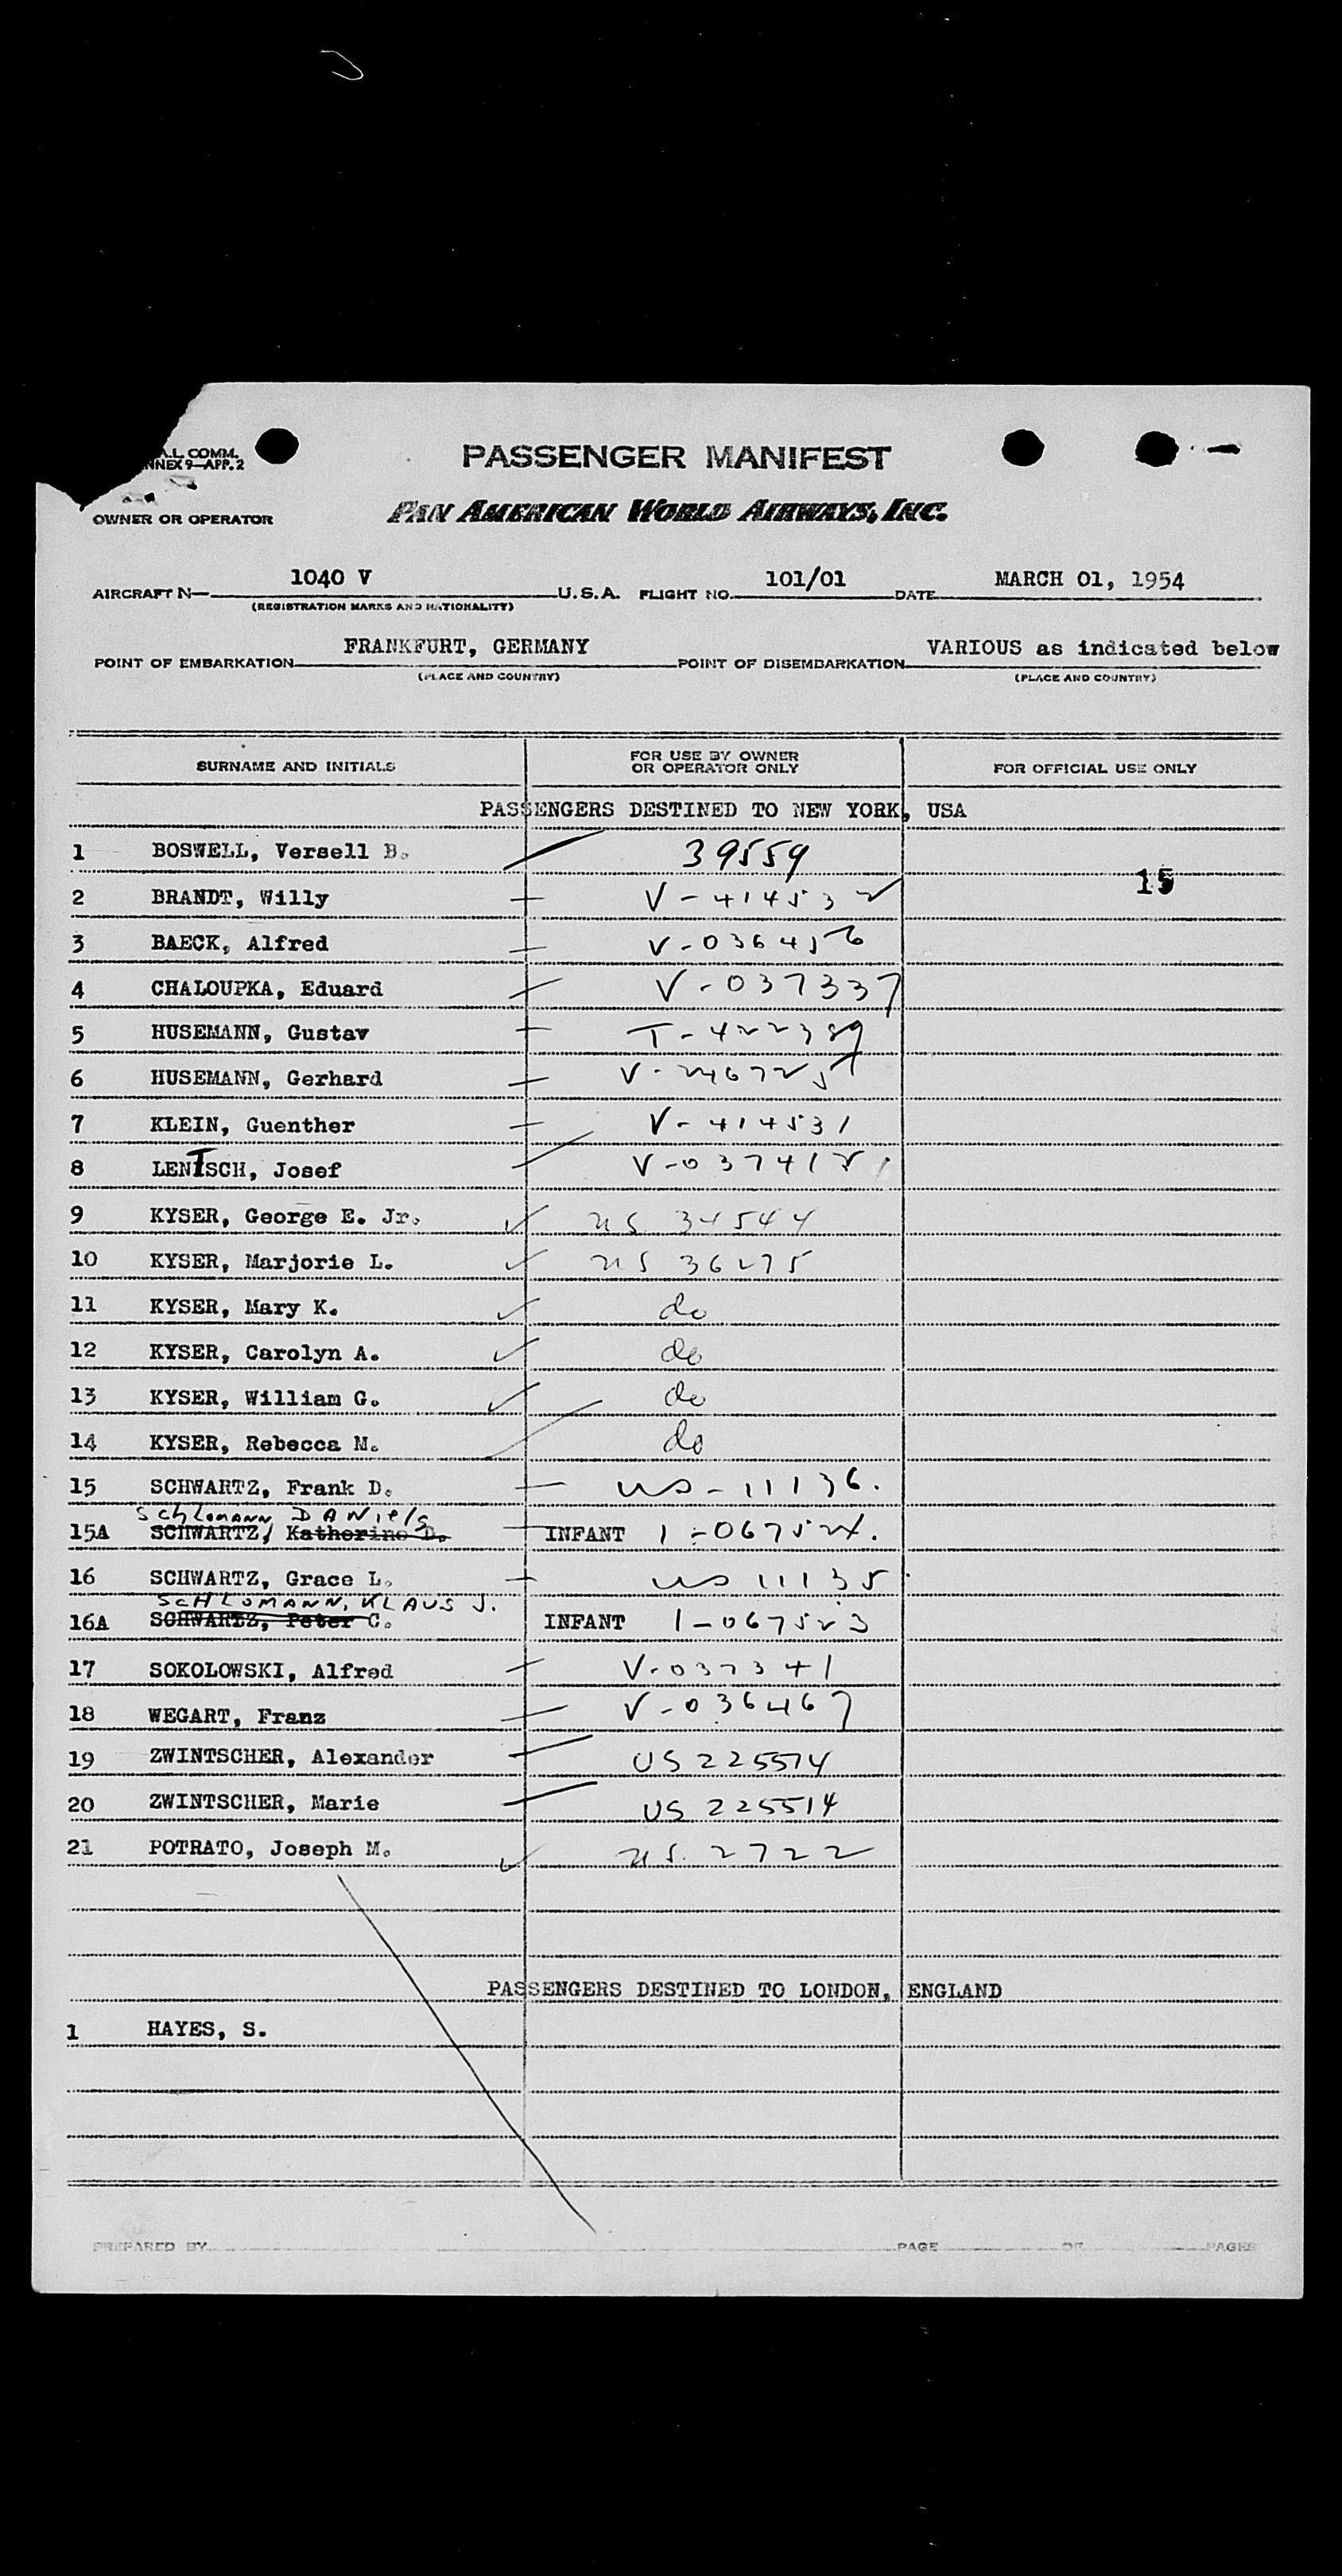 A.L. COMM.
NNEX 9—APP. 2
PASSENGER MANIFEST
OWNER OR OPERATOR PAN AMERICAN WORLD AIRWAYS, INC.
AIRCRAFT N— 1040 V U.S.A. FLIGHT NO. 101/01 DATE MARCH 01, 1954
(REGISTRATION MARKS AND NATIONALITY)
POINT OF EMBARKATION FRANKFURT, GERMANY POINT OF DISEMBARKATION VARIOUS as indicated below
(PLACE AND COUNTRY) (PLACE AND COUNTRY)
SURNAME AND INITIALS FOR USE BY OWNER OR OPERATOR ONLY FOR OFFICIAL USE ONLY
PASSENGERS DESTINED TO NEW YORK, USA
1 BOSWELL, Versell B. 39559
15
2 BRANDT, Willy V-414532
3 BAECK, Alfred V-036456
4 CHALOUPKA, Eduard V-037337
5 HUSEMANN, Gustav T-422389
6 HUSEMANN, Gerhard V-246725
7 KLEIN, Guenther V-414531
8 LENTSCH, Josef V-037418
9 KYSER, George E. Jr. US 34544
10 KYSER, Marjorie L. US 36275
11 KYSER, Mary K. do
12 KYSER, Carolyn A. do
13 KYSER, William G. do
14 KYSER, Rebecca M. do
15 SCHWARTZ, Frank D. US-11136.
SCHLOMANN DANIELS
15A SCHWARTZ, Katherine D. INFANT I-067524.
16 SCHWARTZ, Grace L. US 11135
SCHLOMANN, KLAUS J.
16A SCHWARTZ, Peter C. INFANT I-067523
17 SOKOLOWSKI, Alfred V-037341
18 WEGART, Franz V-036467
19 ZWINTSCHER, Alexander US 225514
20 ZWINTSCHER, Marie US 225514
21 POTRATO, Joseph M. US. 2722
PASSENGERS DESTINED TO LONDON, ENGLAND
1 HAYES, S.
PREPARED BY PAGE OF PAGES